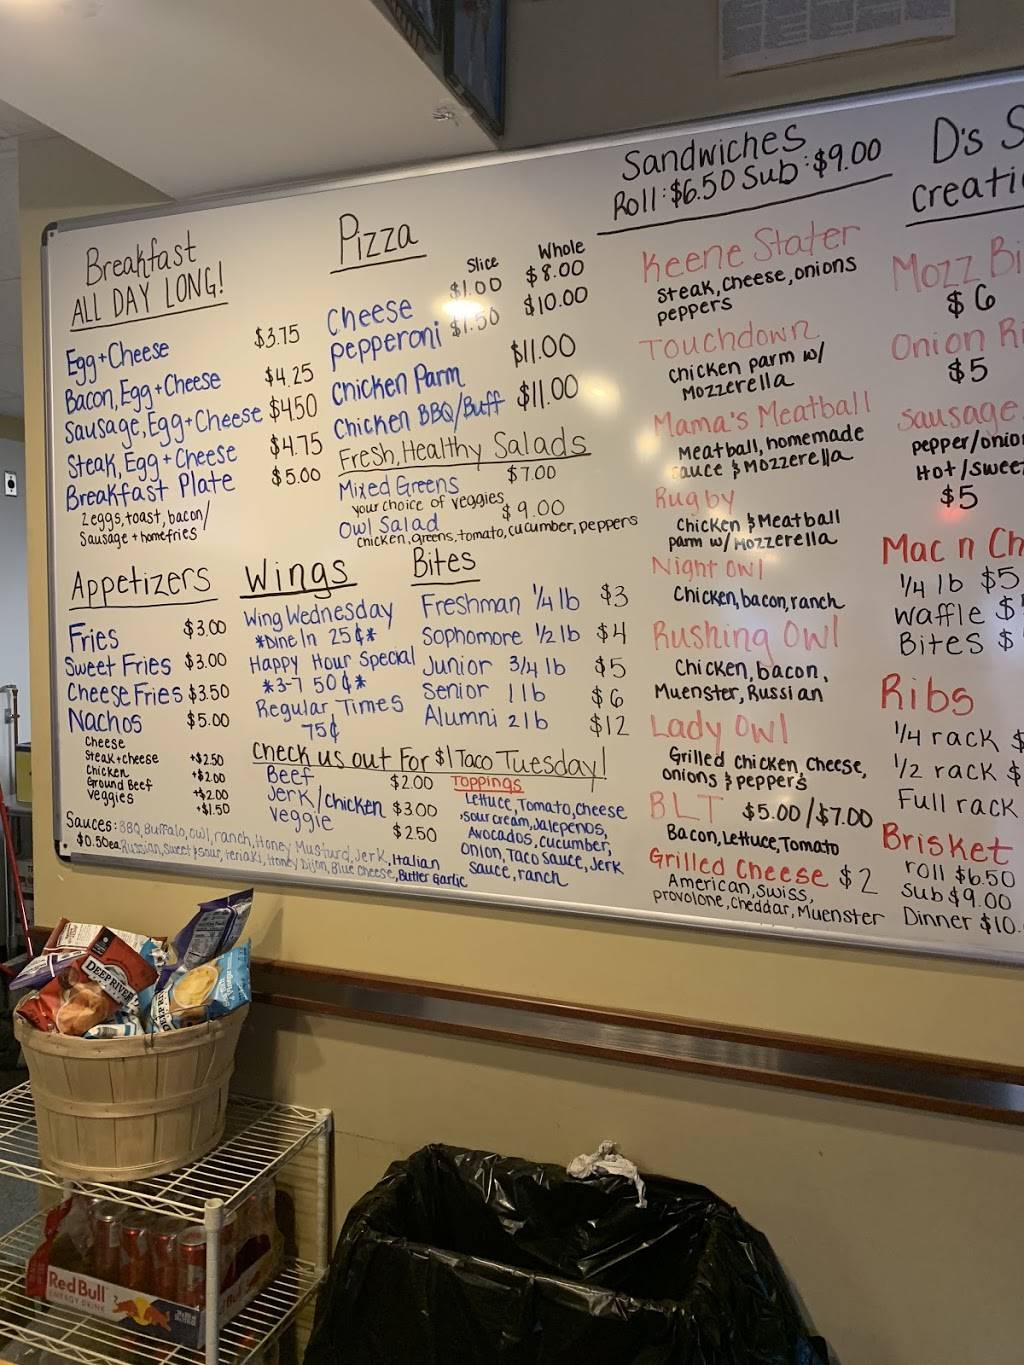 Breakfast
ALL DAY LONG!
Egg+Cheese $3.75
Bacon, Egg+Cheese $4.25
Sausage, Egg+Cheese $4.50
Steak, Egg+Cheese $4.75
Breakfast Plate $5.00
2 eggs, toast, bacon/
Sausage + homefries
Pizza
Slice Whole
Cheese $1.00 $8.00
Pepperoni $1.50 $10.00
Chicken Parm $11.00
Chicken BBQ/Buff $11.00
Fresh, Healthy Salads
Mixed Greens $7.00
your choice of veggies
Owl Salad $9.00
chicken, greens, tomato, cucumber, peppers
Appetizers
Fries $3.00
Sweet Fries $3.00
Cheese Fries $3.50
Nachos $5.00
Cheese
Steak+cheese +$2.50
Chicken +$2.00
Ground Beef +$2.00
Veggies +$1.50
Wings
Wing Wednesday
*Dine In 25¢*
Happy Hour Special
*3-7 50¢*
Regular Times
75¢
Bites
Freshman 1/4 lb $3
Sophomore 1/2 lb $4
Junior 3/4 lb $5
Senior 1 lb $6
Alumni 2 lb $12
Check us out For $1 Taco Tuesday!
Beef $2.00
Jerk/chicken $3.00
Veggie $2.50
Toppings
Lettuce, Tomato, cheese
, sour cream, Jalepenos,
Avocados, cucumber,
Onion, Taco Sauce, Jerk
Sauce, ranch
Sauces: BBQ, Buffalo, owl, ranch, Honey Mustard, Jerk, Italian
$0.50ea Russian, Sweet & sour, teriaki, Honey Dijon, Blue Cheese, Butter Garlic
Sandwiches
Roll: $6.50 Sub: $9.00
Keene Stater
Steak, cheese, onions
peppers
Touchdown
Chicken parm w/
Mozzerella
Mama's Meatball
Meatball, homemade
sauce & Mozzerella
Rugby
Chicken & Meatball
parm w/ Mozzerella
Night Owl
Chicken, bacon, ranch
Rushing Owl
Chicken, bacon,
Muenster, Russian
Lady Owl
Grilled chicken, Cheese,
onions & peppers
BLT $5.00/$7.00
Bacon, Lettuce, Tomato
Grilled Cheese $2
American, Swiss,
provolone, cheddar, Muenster
D's S
Creati
Mozz Bi
$6
Onion Ri
$5
Sausage
pepper/onion
Hot/Sweet
$5
Mac n Ch
1/4 lb $5
Waffle $
Bites $
Ribs
1/4 rack $
1/2 rack $
Full rack
Brisket
roll $6.50
Sub $9.00
Dinner $10.
DEEP RIVER
Red Bull
ENERGY DRINK